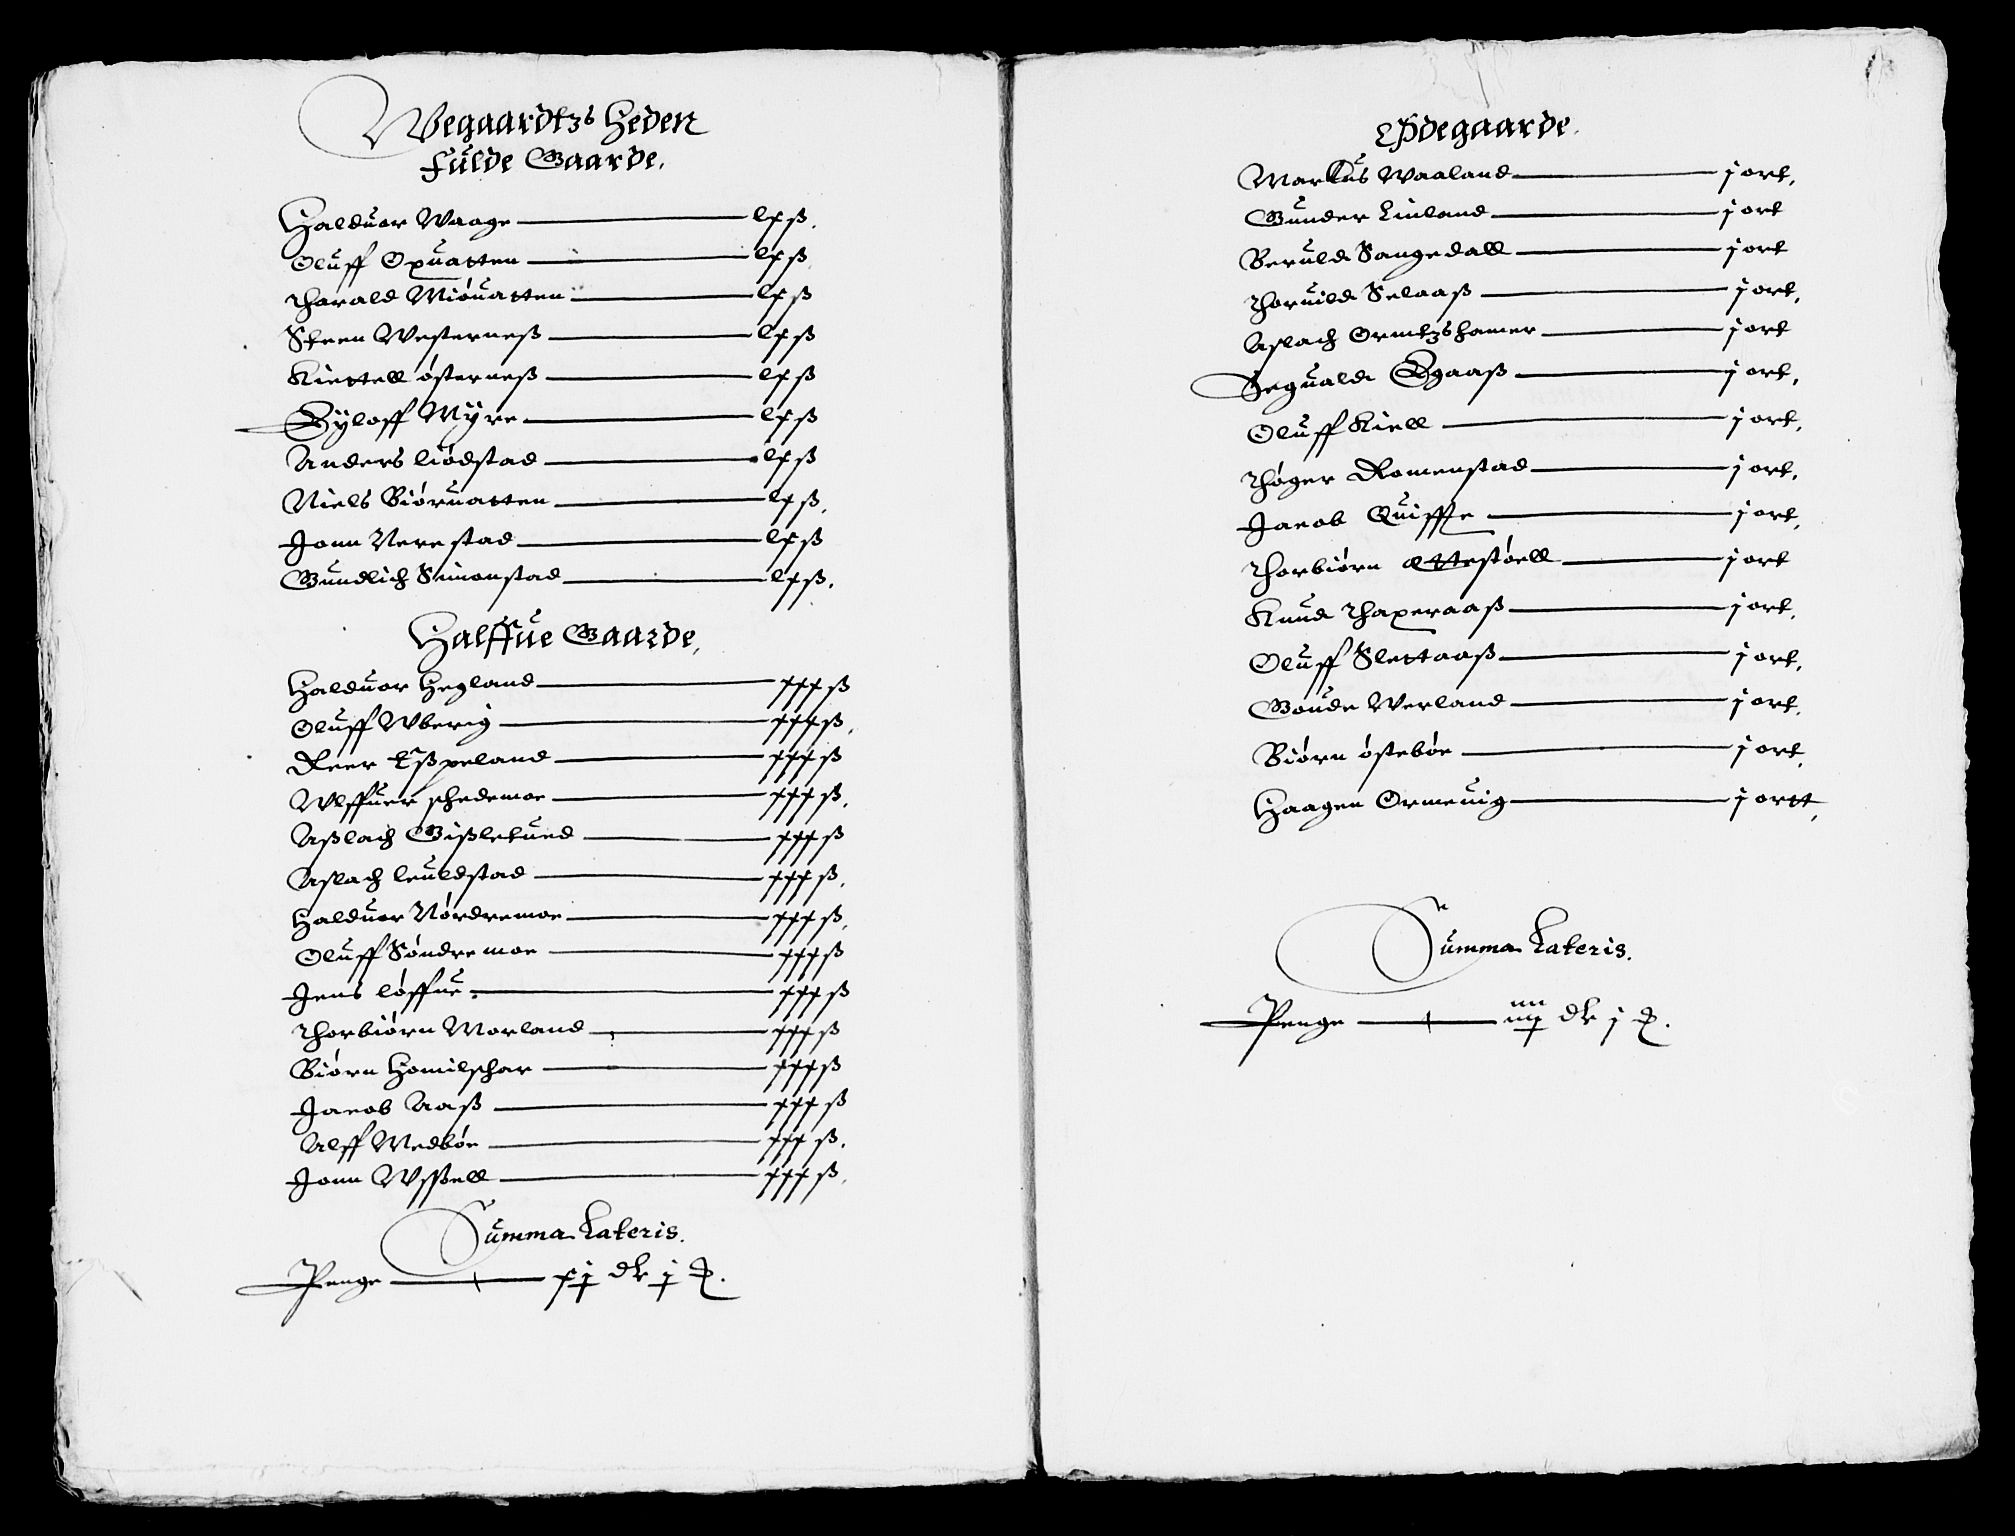 Wegaardtzs Heden
Fulde Gaarde.
Halduor Waage — lxß.
Oluff Oxuatten — lxß
Tharald Miöuatten — lxß
Steen Westerneß — lxß
Kiettell österneß — lxß
Gyloff Myre — lxß
Anders liödstad — lxß
Niels Biöruatten — lxß.
Jonn Nerestad — lxß
Gundlich Simonstad — lxß.
Halffue Gaarde.
Halduor Hegland — xxxß
Oluff Wberig — xxxß.
Reer Eßpeland — xxxß
Wlffuer schedemoe — xxxß.
Aßlach Gißletued — xxxß
Aslach leuldstad — xxxß.
Halduor Nördremoe — xxxß.
Oluff Söndremoe — xxxß
Jens löffue. — xxxß
Thorbiörn Morland — xxxß
Biörn Homilschar — xxxß
Jacob Aaß — xxxß
Alff Medböe — xxxß.
Jonn Wssell — xxxß.
Summa Lateris.
Penge — xj dr j
Ödegaarde.
Markus Waaland — j ort.
Gunder Linland — j ort
Beruld Sangedall — j ort
Thoruild Selaaß — j ort.
Aslach Ormtzshamer — j ort
Seguald Egaaß — j ort.
Oluff Kiell — j ort.
Thöger Romenstad — j ort.
Jacob Quiffe — j ort.
Thorbiörn Ettestöell — j ort
Knud Thaxeraaß — j ort.
Oluff Slettaaß — j ort.
Goude Werland — j ort.
Biörn östeböe — j ort.
Haagen Ormeuig — j ortt.
Summa Lateris.
Penge — iiij dr j